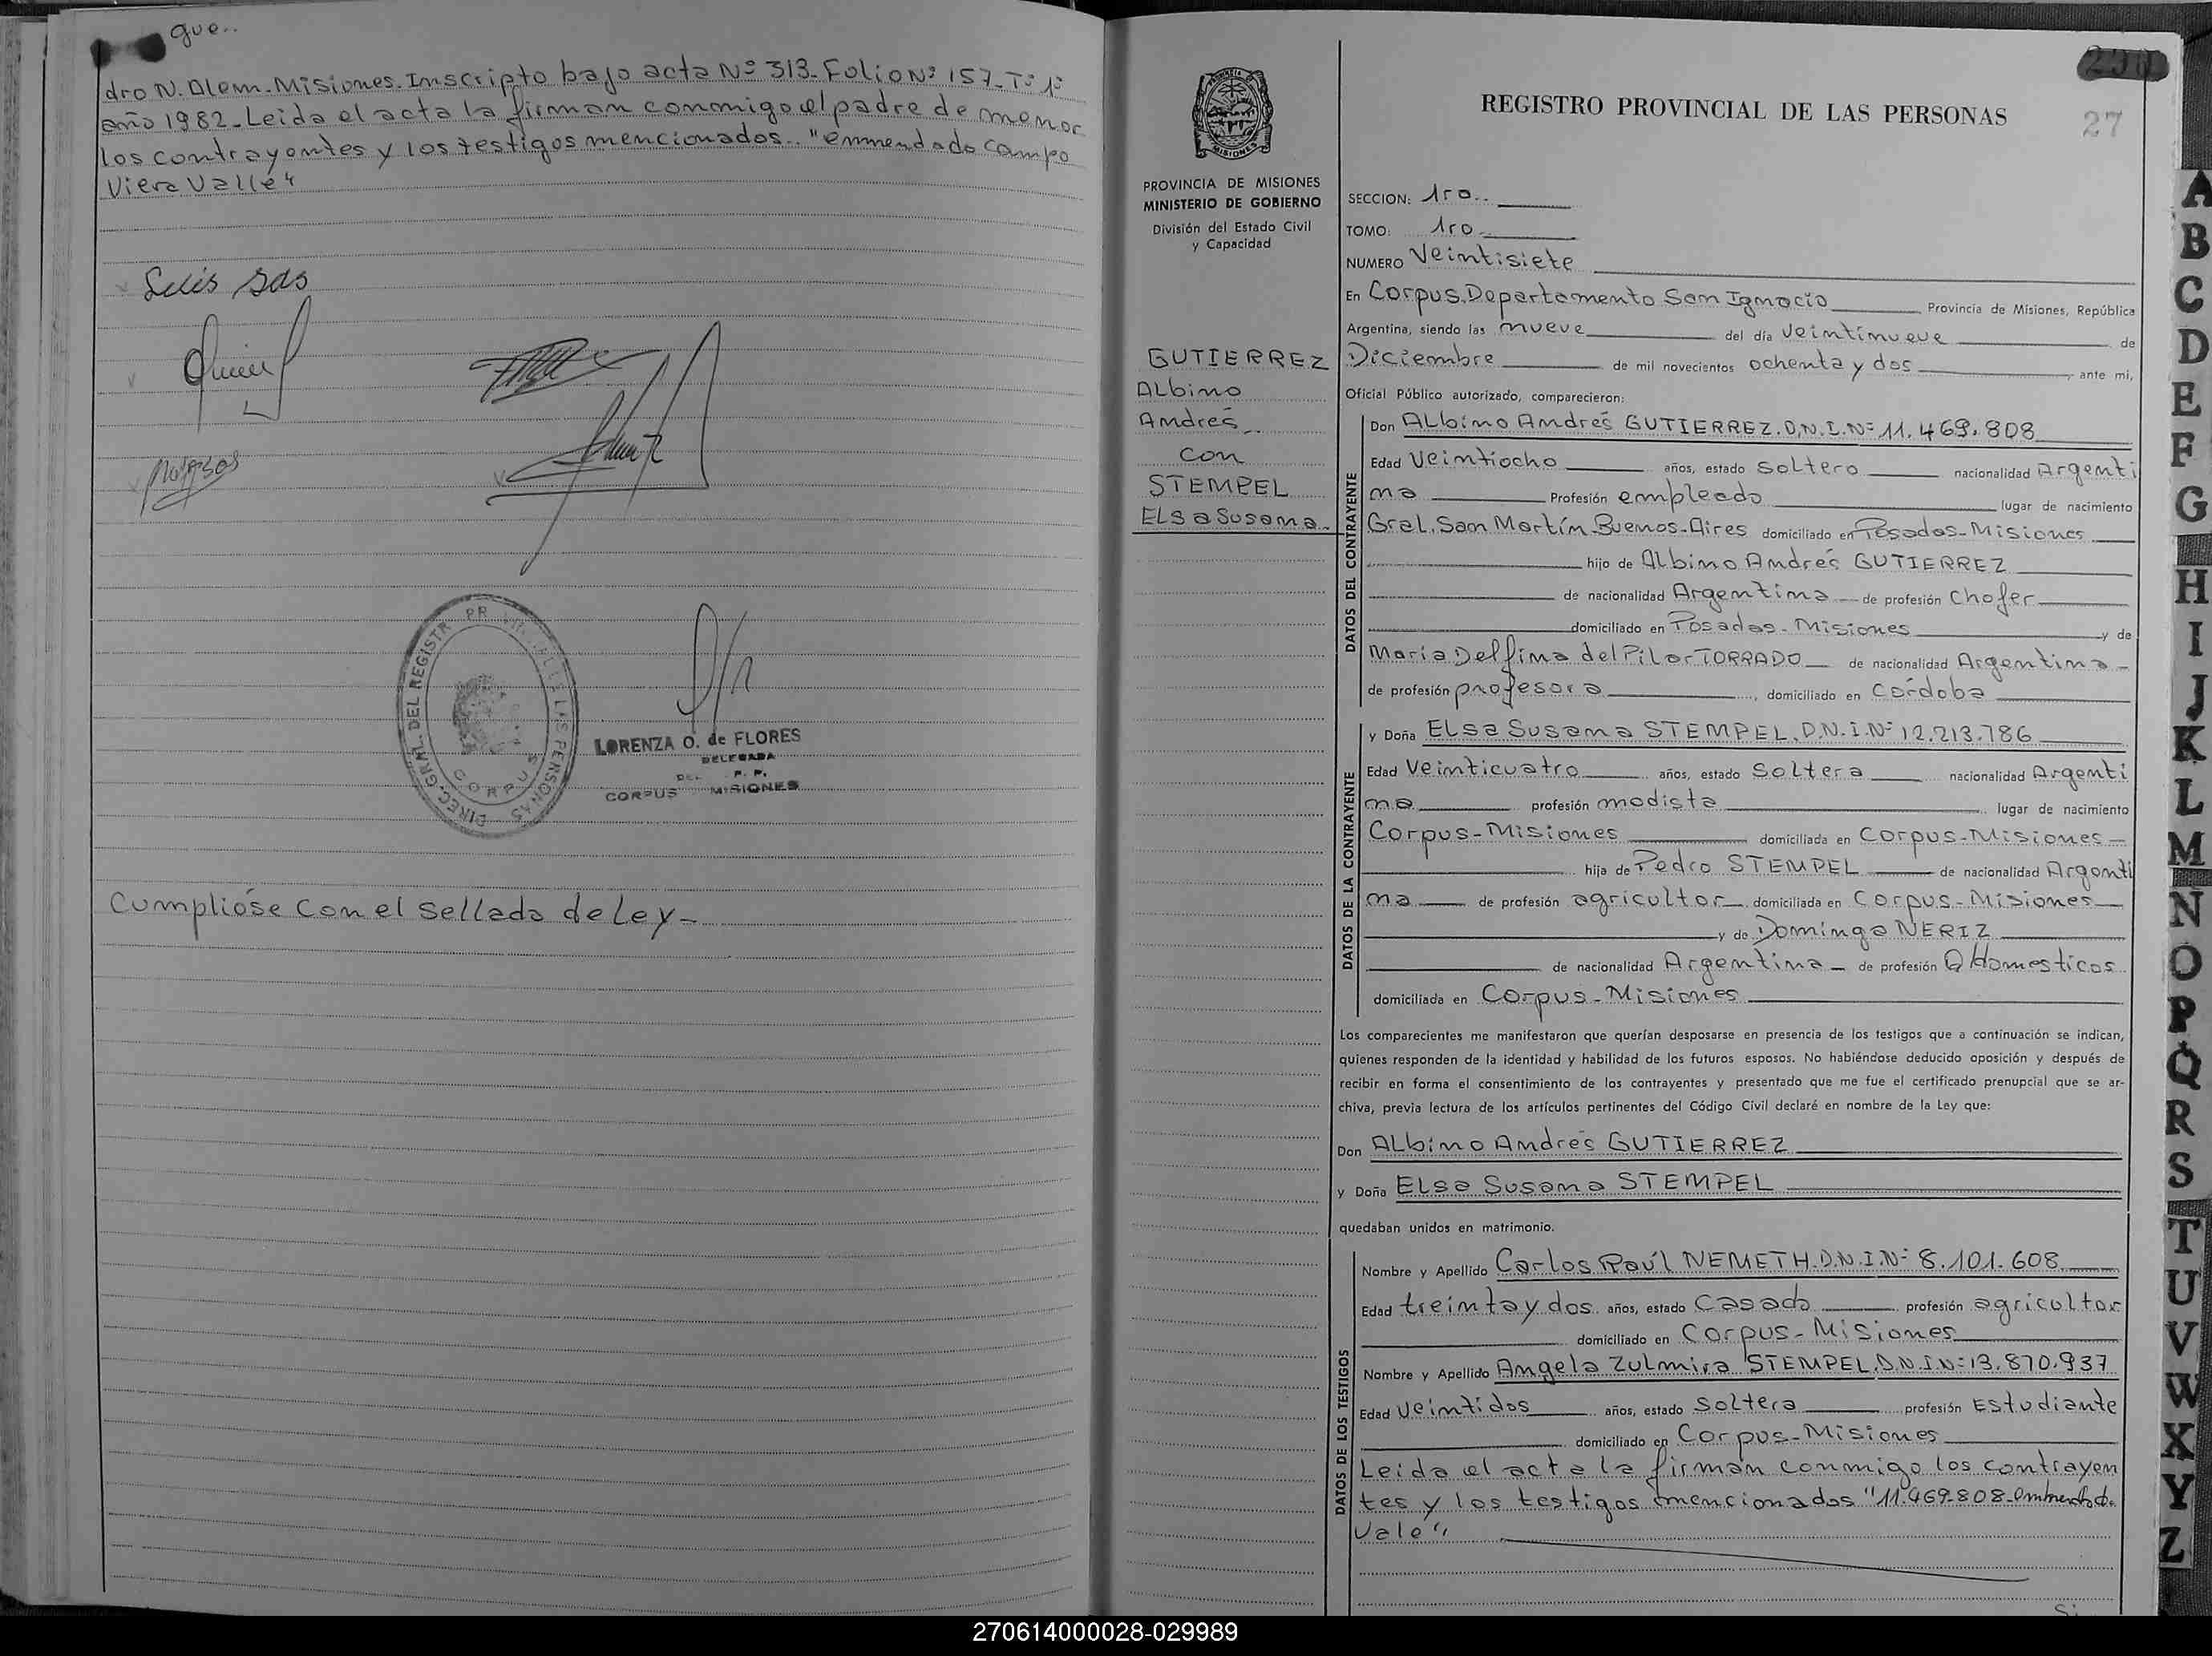 gue..
dro N. Alem. Misiones. Inscripto bajo acta Nº 313. Folio Nº 157. Tº 1º
año 1982. Leida el acta la firman conmigo el padre de menor
los contrayentes y los testigos mencionados.. "enmendado campo
Viera Valle"
Luis sas
LORENZA O. de FLORES
DELEGADA
DEL R. P. P.
CORPUS MISIONES
DIREC. GRAL. DEL REGISTR PROVINCIAL DE LAS PERSONAS
CORPUS
Cumplióse con el sellado de Ley-
27
REGISTRO PROVINCIAL DE LAS PERSONAS
MISIONES
PROVINCIA DE MISIONES
MINISTERIO DE GOBIERNO
División del Estado Civil
y Capacidad
GUTIERREZ
Albino
Andrés
con
STEMPEL
Elsa Susana
SECCION: 1ro..
TOMO: 1ro
NUMERO Veintisiete
En Corpus. Departamento San Ignacio Provincia de Misiones, República
Argentina, siendo las nueve del día veintinueve de
Diciembre de mil novecientos ochenta y dos, ante mi,
Oficial Público autorizado, comparecieron:
DATOS DEL CONTRAYENTE
Don Albino Andrés GUTIERREZ. D.N.I. Nº 11.469.808
Edad Veintiocho años, estado soltero nacionalidad Argenti
na Profesión empleado lugar de nacimiento
Gral. San Martín Buenos-Aires domiciliado en Posadas-Misiones
hijo de Albino Andrés GUTIERREZ
de nacionalidad Argentina de profesión chofer
domiciliado en Posadas-Misiones y de
María Delfina del Pilar TORRADO de nacionalidad Argentina
de profesión profesora, domiciliado en Córdoba
DATOS DE LA CONTRAYENTE
y Doña Elsa Susana STEMPEL. D.N.I. Nº 12.213.786
Edad Veinticuatro años, estado soltera nacionalidad Argenti
na profesión modista lugar de nacimiento
Corpus-Misiones domiciliada en Corpus-Misiones
hija de Pedro STEMPEL de nacionalidad Argenti
na de profesión agricultor domiciliada en Corpus-Misiones
y de Dominga NERIZ
de nacionalidad Argentina de profesión Q Homesticos
domiciliada en Corpus-Misiones
Los comparecientes me manifestaron que querían desposarse en presencia de los testigos que a continuación se indican,
quienes responden de la identidad y habilidad de los futuros esposos. No habiéndose deducido oposición y después de
recibir en forma el consentimiento de los contrayentes y presentado que me fue el certificado prenupcial que se ar-
chiva, previa lectura de los artículos pertinentes del Código Civil declaré en nombre de la Ley que:
Don Albino Andrés GUTIERREZ
y Doña Elsa Susana STEMPEL
quedaban unidos en matrimonio.
DATOS DE LOS TESTIGOS
Nombre y Apellido Carlos Raúl NEMETH. D.N.I. Nº 8.101.608
Edad treinta y dos años, estado casado profesión agricultor
domiciliado en Corpus-Misiones
Nombre y Apellido Angela Zulmira STEMPEL. D.N.I. Nº 13.870.937
Edad Veintidos años, estado soltera profesión Estudiante
domiciliado en Corpus-Misiones
Leida el acta la firman conmigo los contrayen
tes y los testigos mencionados "11.469.808-enmendado.
Vale"
Si
A
B
C
D
E
F
G
H
I
J
K
L
M
N
O
P
Q
R
S
T
U
V
W
X
Y
Z
270614000028-029989